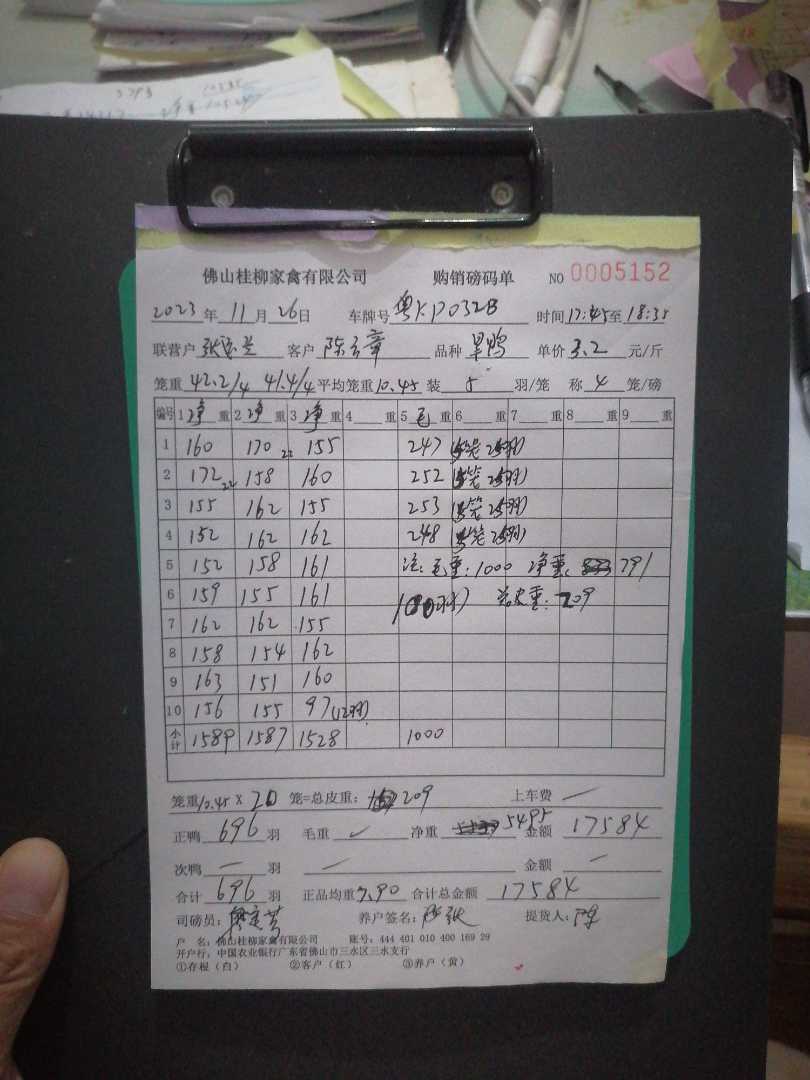 佛山桂柳家禽有限公司 购销磅码单 NO 0005152
2023年11月26日 车牌号 粤 P032B 时间17:45至18:35
联营户 张 兰 客户 陈 章 品种 旱鸭 单价 3.2 元/斤
笼重42.2/4 41.4/4 平均笼重10.45 装 5 羽/笼 称 4 笼/磅
编号 1净重 2净重 3净重 4重 5毛重 6重 7重 8重 9重
1 160 170 22 155 247 (5笼25羽)
2 172 22 158 160 252 (5笼25羽)
3 155 162 155 253 (5笼25羽)
4 152 162 162 248 (5笼25羽)
5 152 158 161 注:毛重:1000 净重: 791
6 159 155 161 100羽) 总皮重:209
7 162 162 155
8 158 154 162
9 163 151 160
10 156 155 97(12羽)
小计 1589 1587 1528 1000
笼重10.45 X 20 笼=总皮重: 209 上车费 —
正鸭 696 羽 毛重 ✓ 净重 5495 金额 17584
次鸭 — 羽 — 金额 —
合计 696 羽 正品均重7.90 合计总金额 17584
司磅员: 养户签名: 张 提货人: 陈
户 名:佛山桂柳家禽有限公司 账号:444 401 010 400 169 29
开户行:中国农业银行广东省佛山市三水区三水支行
①存根(白) ②客户(红) ③养户(黄)